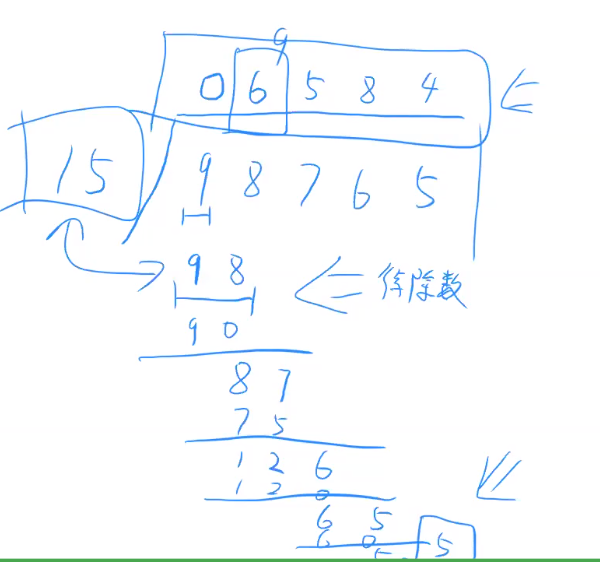 9
0 6 5 8 4
15
9 8 7 6 5
9 8
待除数
9 0
8 7
7 5
1 2 6
1 2 0
6 5
6 0
5
5